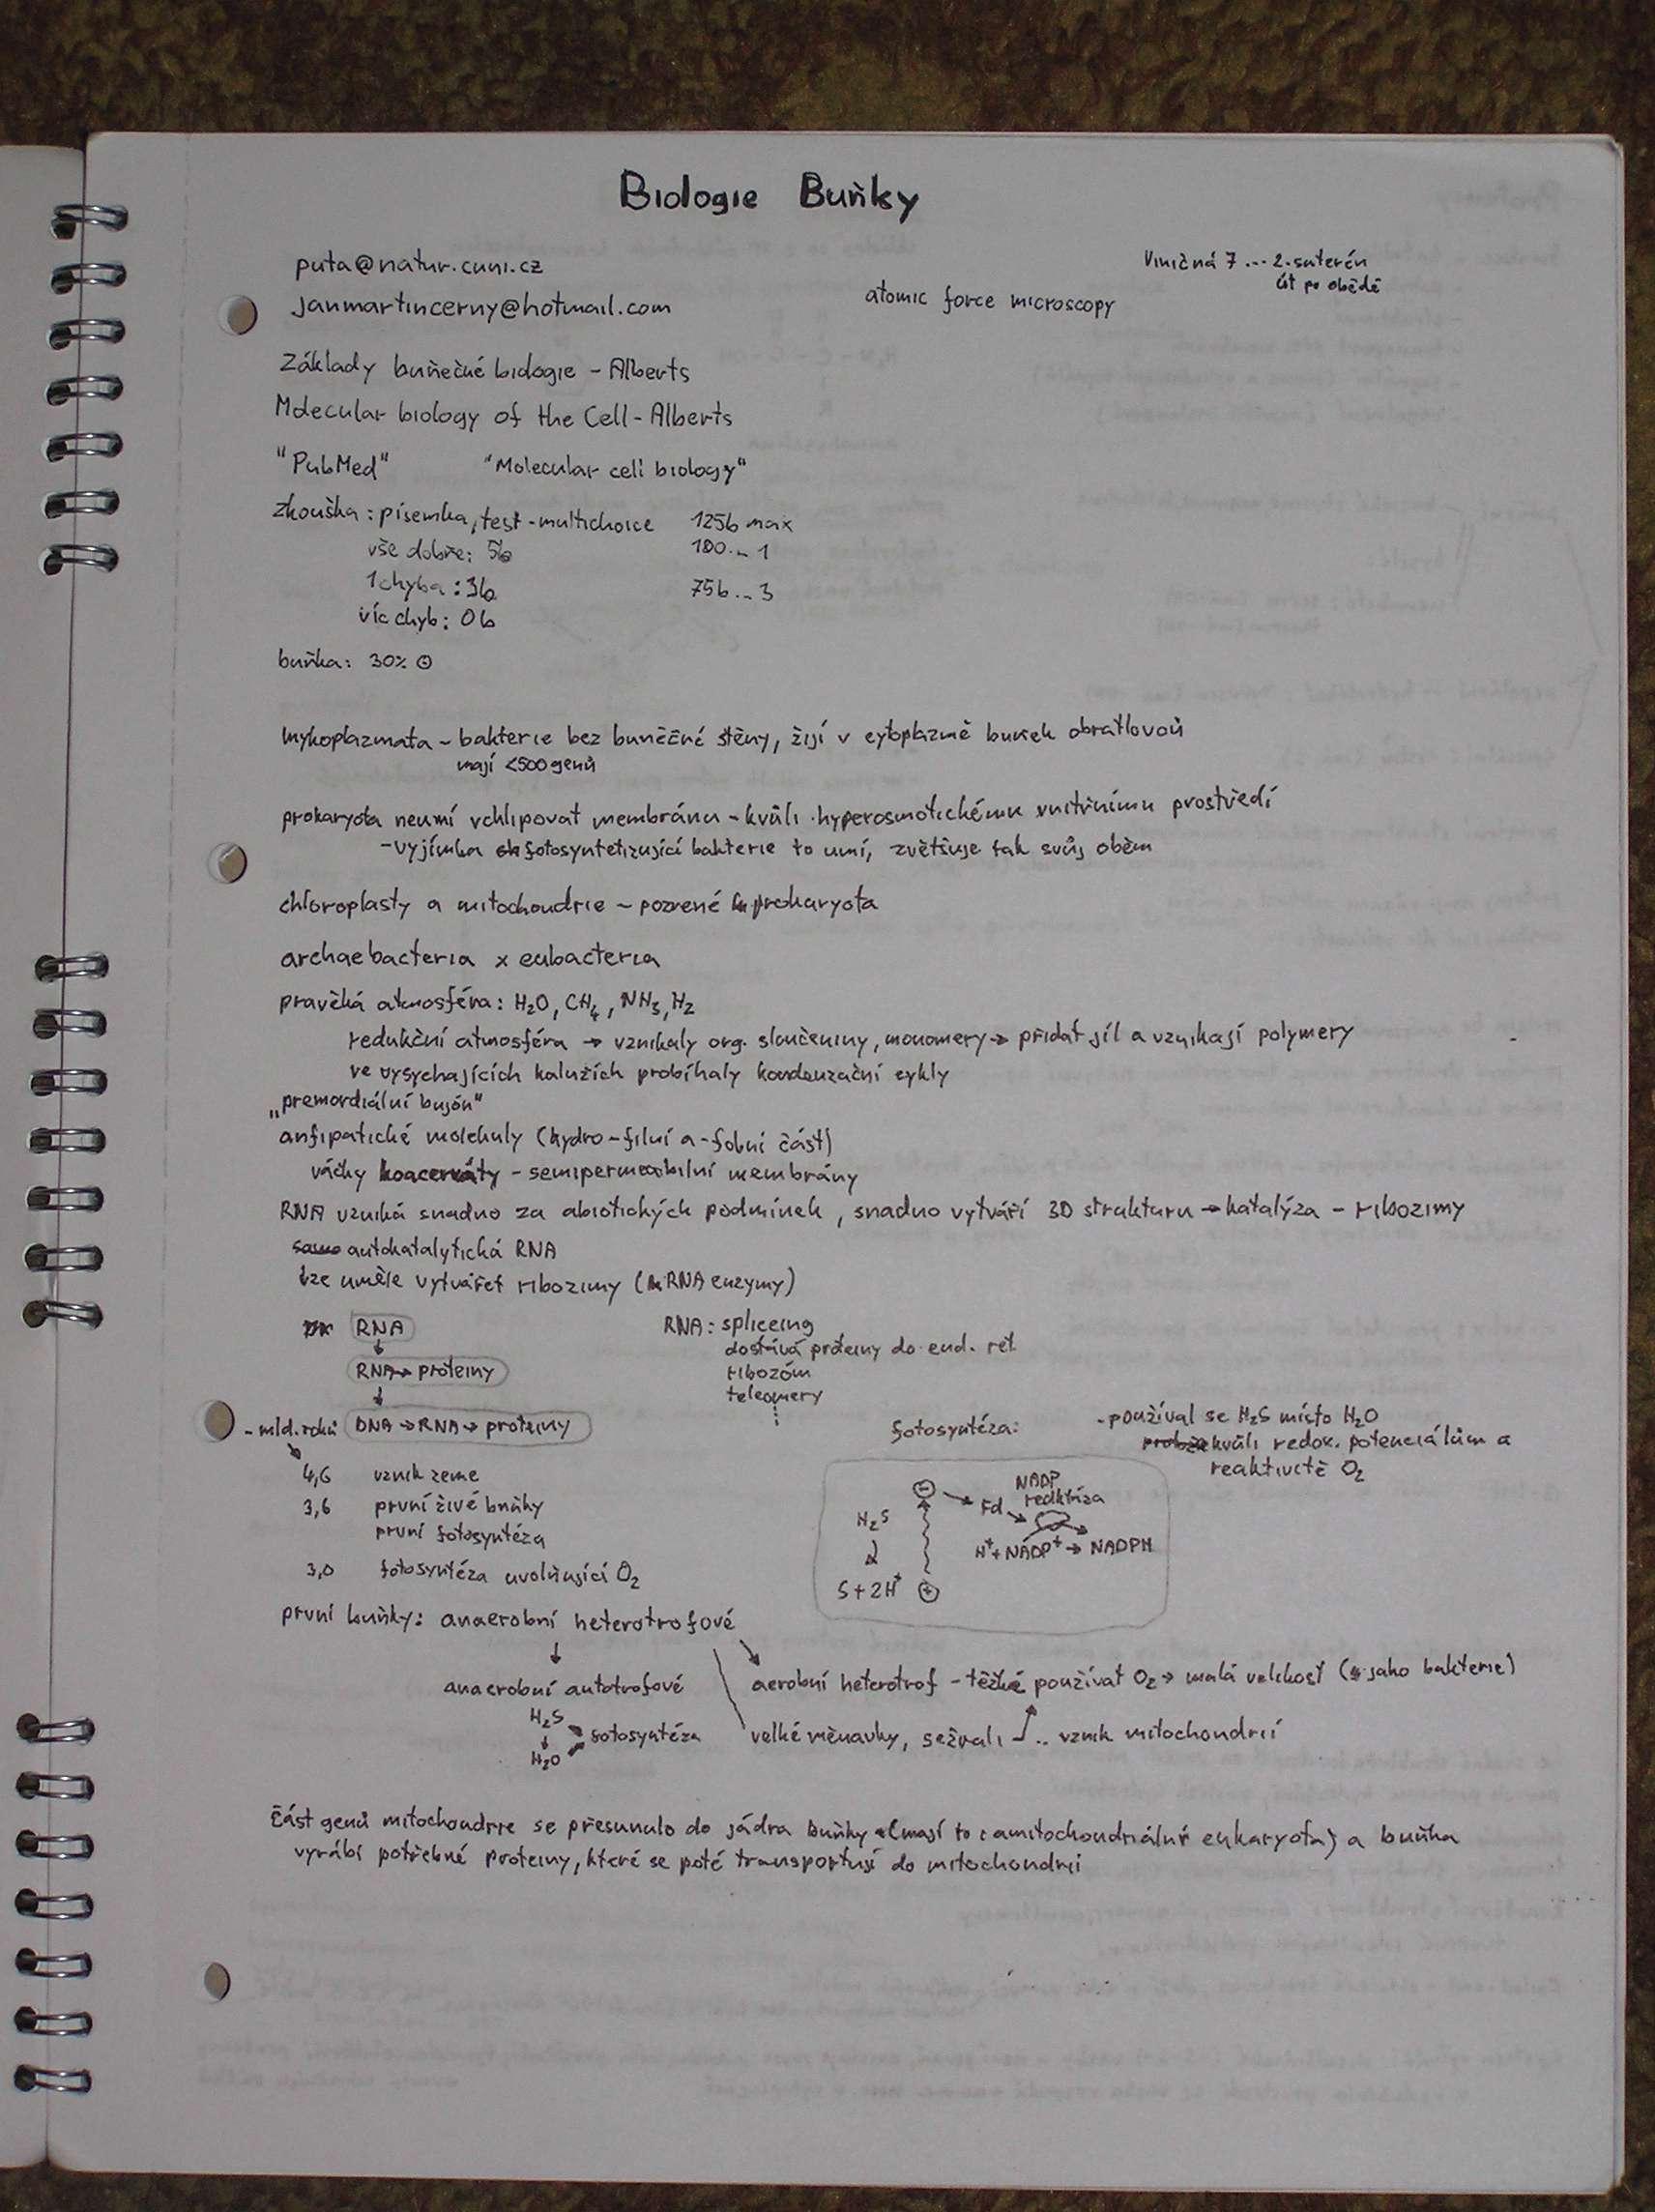 Biologie Buňky
puta@natur.cuni.cz
Viničná 7 ... 2. suterén
út po obědě
janmartincerny@hotmail.com
atomic force microscopy
Základy buněčné biologie - Alberts
Molecular biology of the Cell - Alberts
"PubMed" "Molecular cell biology"
zkouška: písemka, test - multichoice 125b max
vše dobře: 5b 100... 1
1 chyba: 3b 75b... 3
víc chyb: 0b
buňka: 30%
mykoplazmata - bakterie bez buněčné stěny, žijí v cytoplazmě buněk obratlovců
mají <500 genů
prokaryota neumí vchlipovat membránu - kvůli hyperosmotickému vnitřnímu prostředí
- vyjímka fotosyntetizující bakterie to umí, zvětšuje tak svůj objem
chloroplasty a mitochondrie - pozřené prokaryota
archaebacteria x eubacteria
pravěká atmosféra: H₂O, CH₄, NH₃, H₂
redukční atmosféra → vznikaly org. sloučeniny, monomery → přidat jíl a vznikají polymery
ve vysychajících kalužích probíhaly kondenzační cykly
„premordiální bujón"
amfipatické molekuly (hydro-filní a -fobní část)
váčky koacerváty - semipermeabilní membrány
RNA vzniká snadno za abiotických podmínek, snadno vytváří 3D strukturu → katalýza - ribozimy
samo autokatalytická RNA
lze uměle vytvářet ribozimy (RNA enzymy)
RNA
↓
RNA → proteiny
↓
- mld. roků DNA → RNA → proteiny
RNA: spliceing
dostává proteiny do end. ret.
ribozóm
teleomery
4,6 vznik země
3,6 první živé buňky
první fotosyntéza
3,0 fotosyntéza uvolňující O₂
fotosyntéza:
- používal se H₂S místo H₂O
kvůli redox. potenciálům a
reaktivitě O₂
NADP
reduktáza
H₂S
Fd
H⁺ + NADP⁺ → NADPH
S + 2H⁺
první buňky: anaerobní heterotrofové
anaerobní autotrofové
aerobní heterotrof - těžké používat O₂ → malá velikost (jako bakterie)
H₂S
↓
H₂O
fotosyntéza
velké měňavky, sežrali .. vznik mitochondrií
část genů mitochondrie se přesunulo do jádra buňky (mají to i amitochondriální eukaryota) a buňka
vyrábí potřebné proteiny, které se poté transportují do mitochondrií